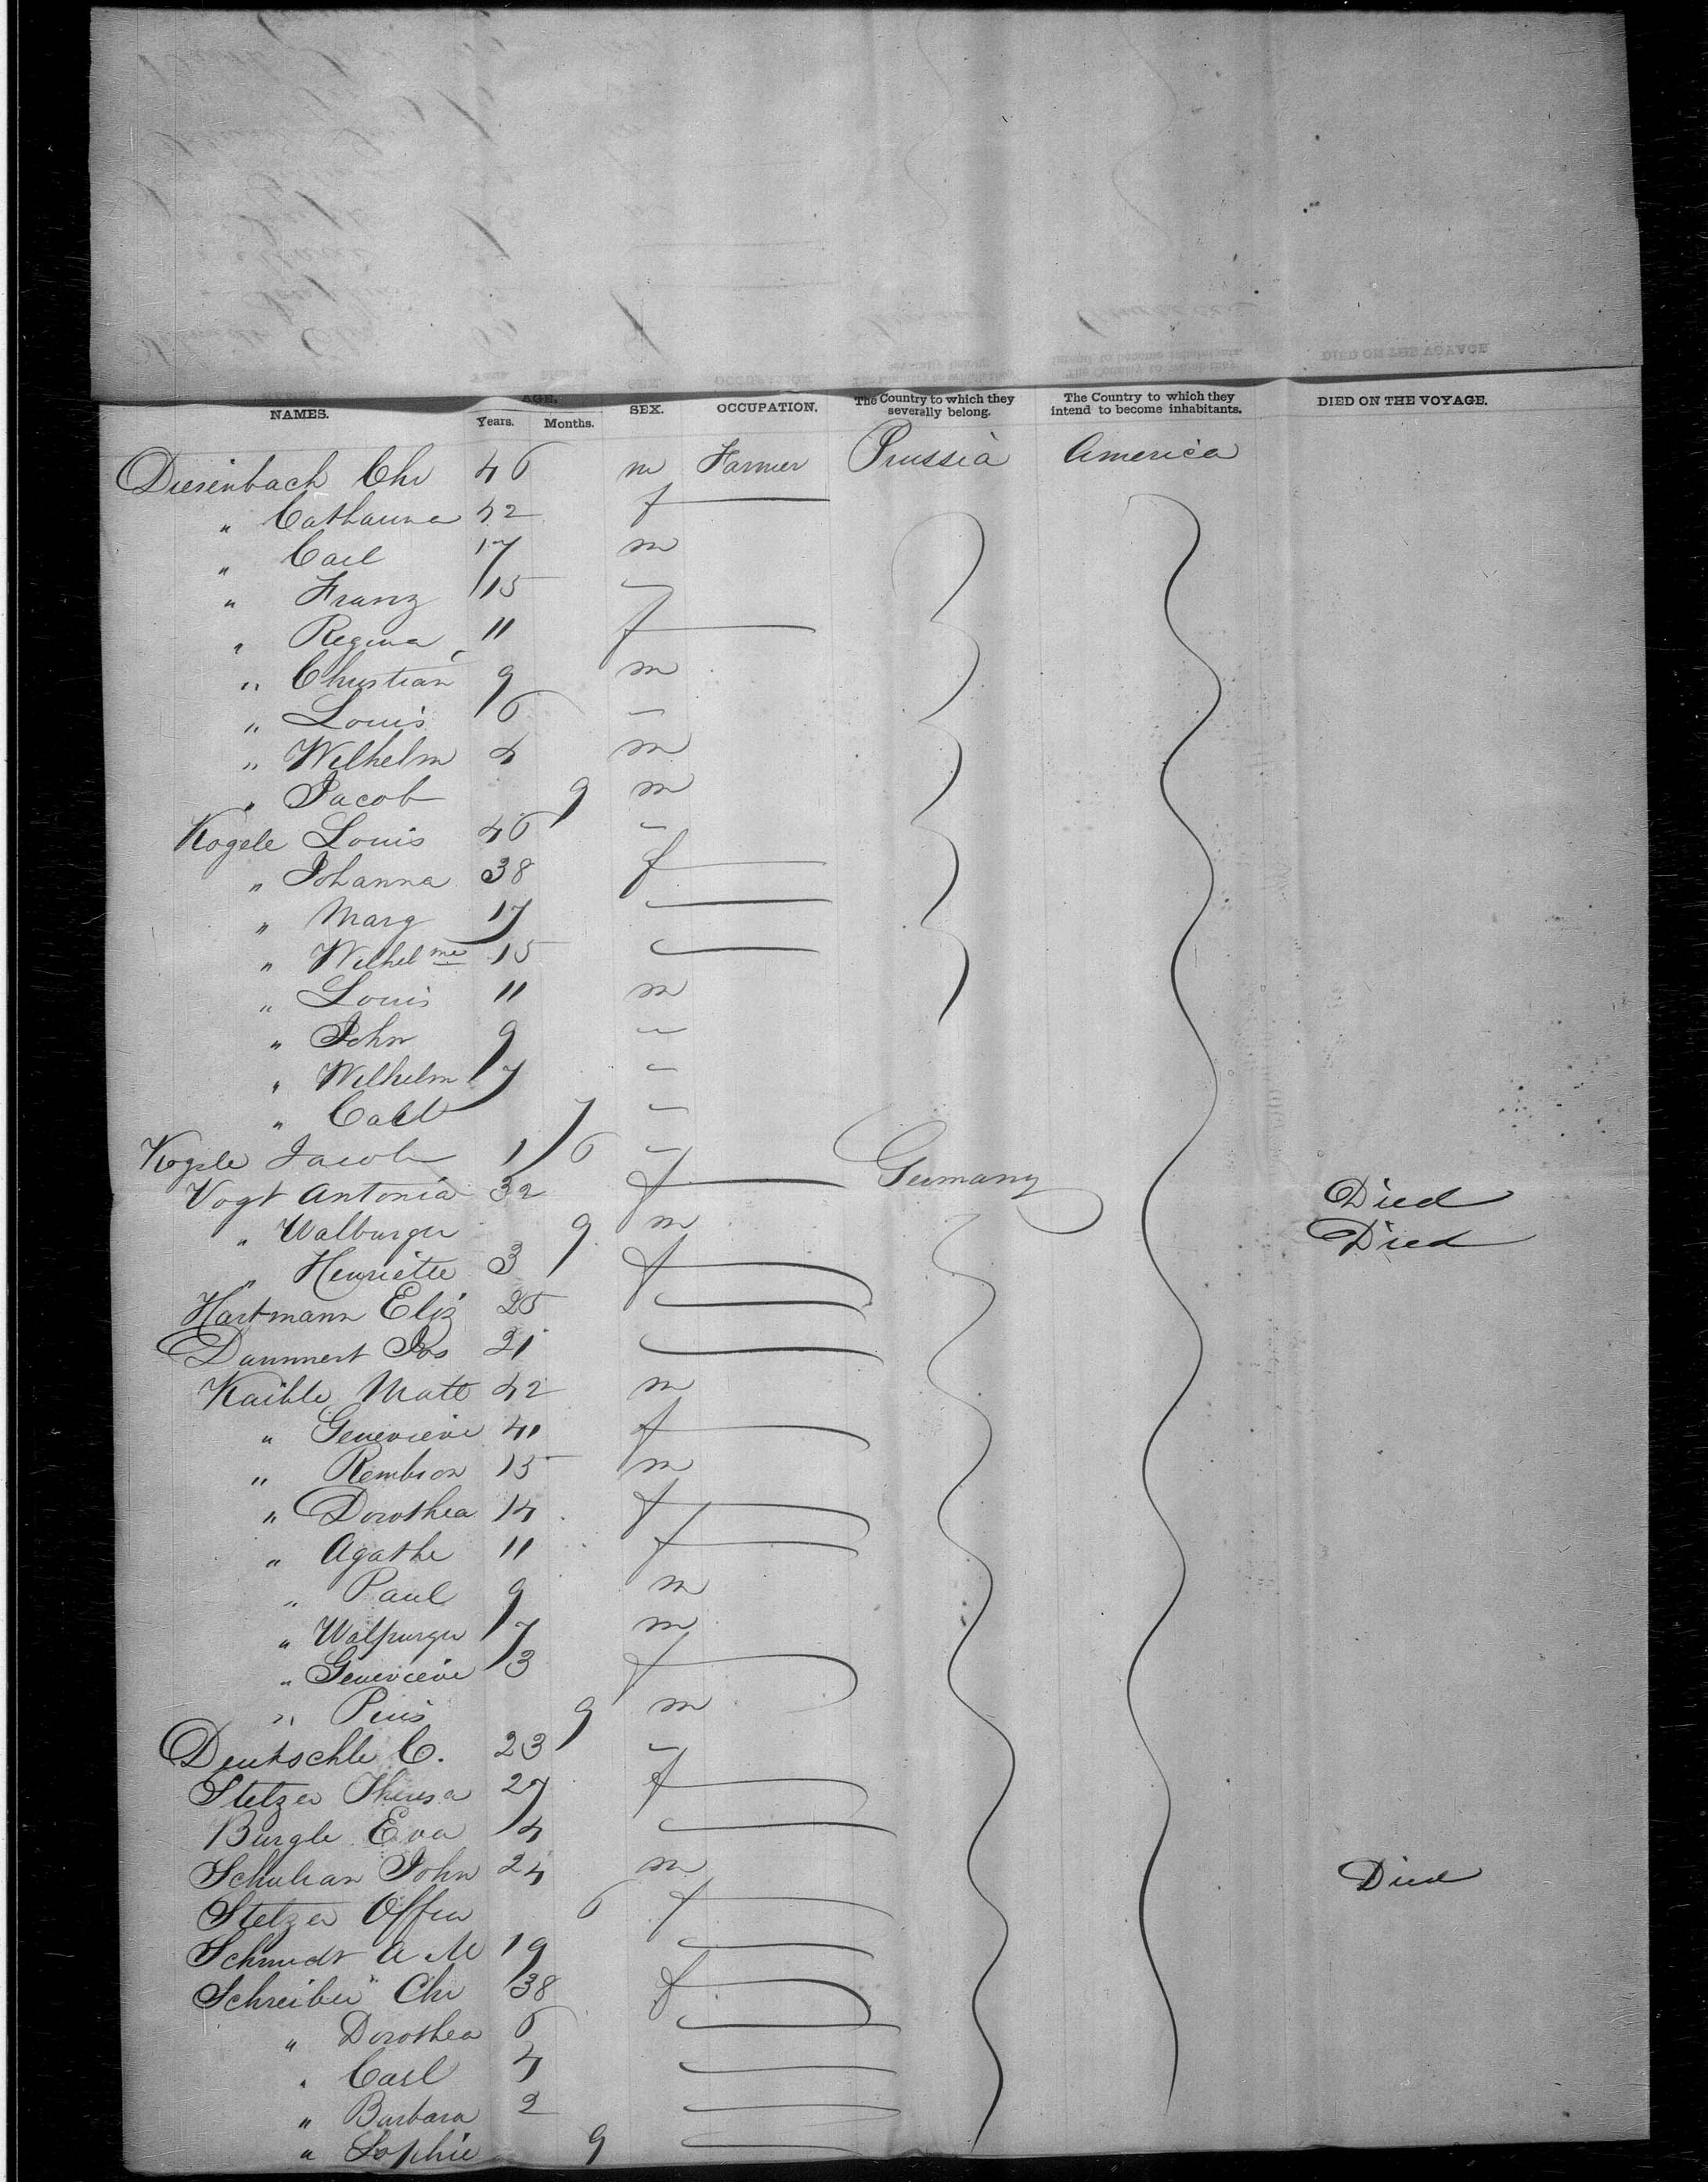 NAMES. AGE. Years. Months. SEX. OCCUPATION. The Country to which they severally belong. The Country to which they intend to become inhabitants. DIED ON THE VOYAGE.
Diesenbach Chr 46 m Farmer Prussia America
" Catharina 42 f
" Carl 17 m
" Franz 15 "
" Regina 11 f
" Christian 9 m
" Louis 6 "
" Wilhelm 4 m
" Jacob 9 m
Kogele Louis 46 "
" Johanna 38 f
" Marg 17
" Wilhelme 15
" Louis 11 m
" John 9 "
" Wilhelm 7 "
" Carl 7 "
Kogele Jacob 1 6 "
Vogt Antonia 32 f Germany Died
" Walburger 9 m Died
" Henriette 3 f
Hartmann Eliz 25
Dammert Jos 21
Kaible Matt 42 m
" Genevieve 41 f
" 15 m
" Dorothea 14 f
" Agathe 11 f
" Paul 9 m
" Walpurger 7 m
" Genevieve 3 f
" Pius 9 m
Deutschle C. 23 "
Stelzer Theresa 27 f
Burgle Eva 4
Schulian John 24 m Died
Stelzer 6 f
Schmidt A M 19
Schreiber Chr 38 f
" Dorothea 6
" Carl 4
" Barbara 2
" Sophie 9